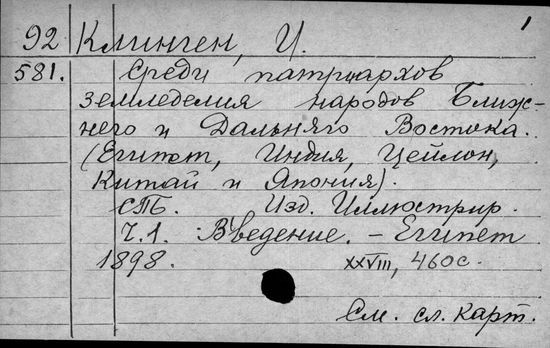 1
92 Клинген, И.
581. Среди патриархов
земледелия народов Ближ-
него и Дальняго Востока.
(Египет, Индия, Цейлон,
Китай и Япония).
СПБ. Изд. Иллюстрир.
Ч.1. Введение. – Египет
1898. XXVIII, 460с.
См. сл. карт.